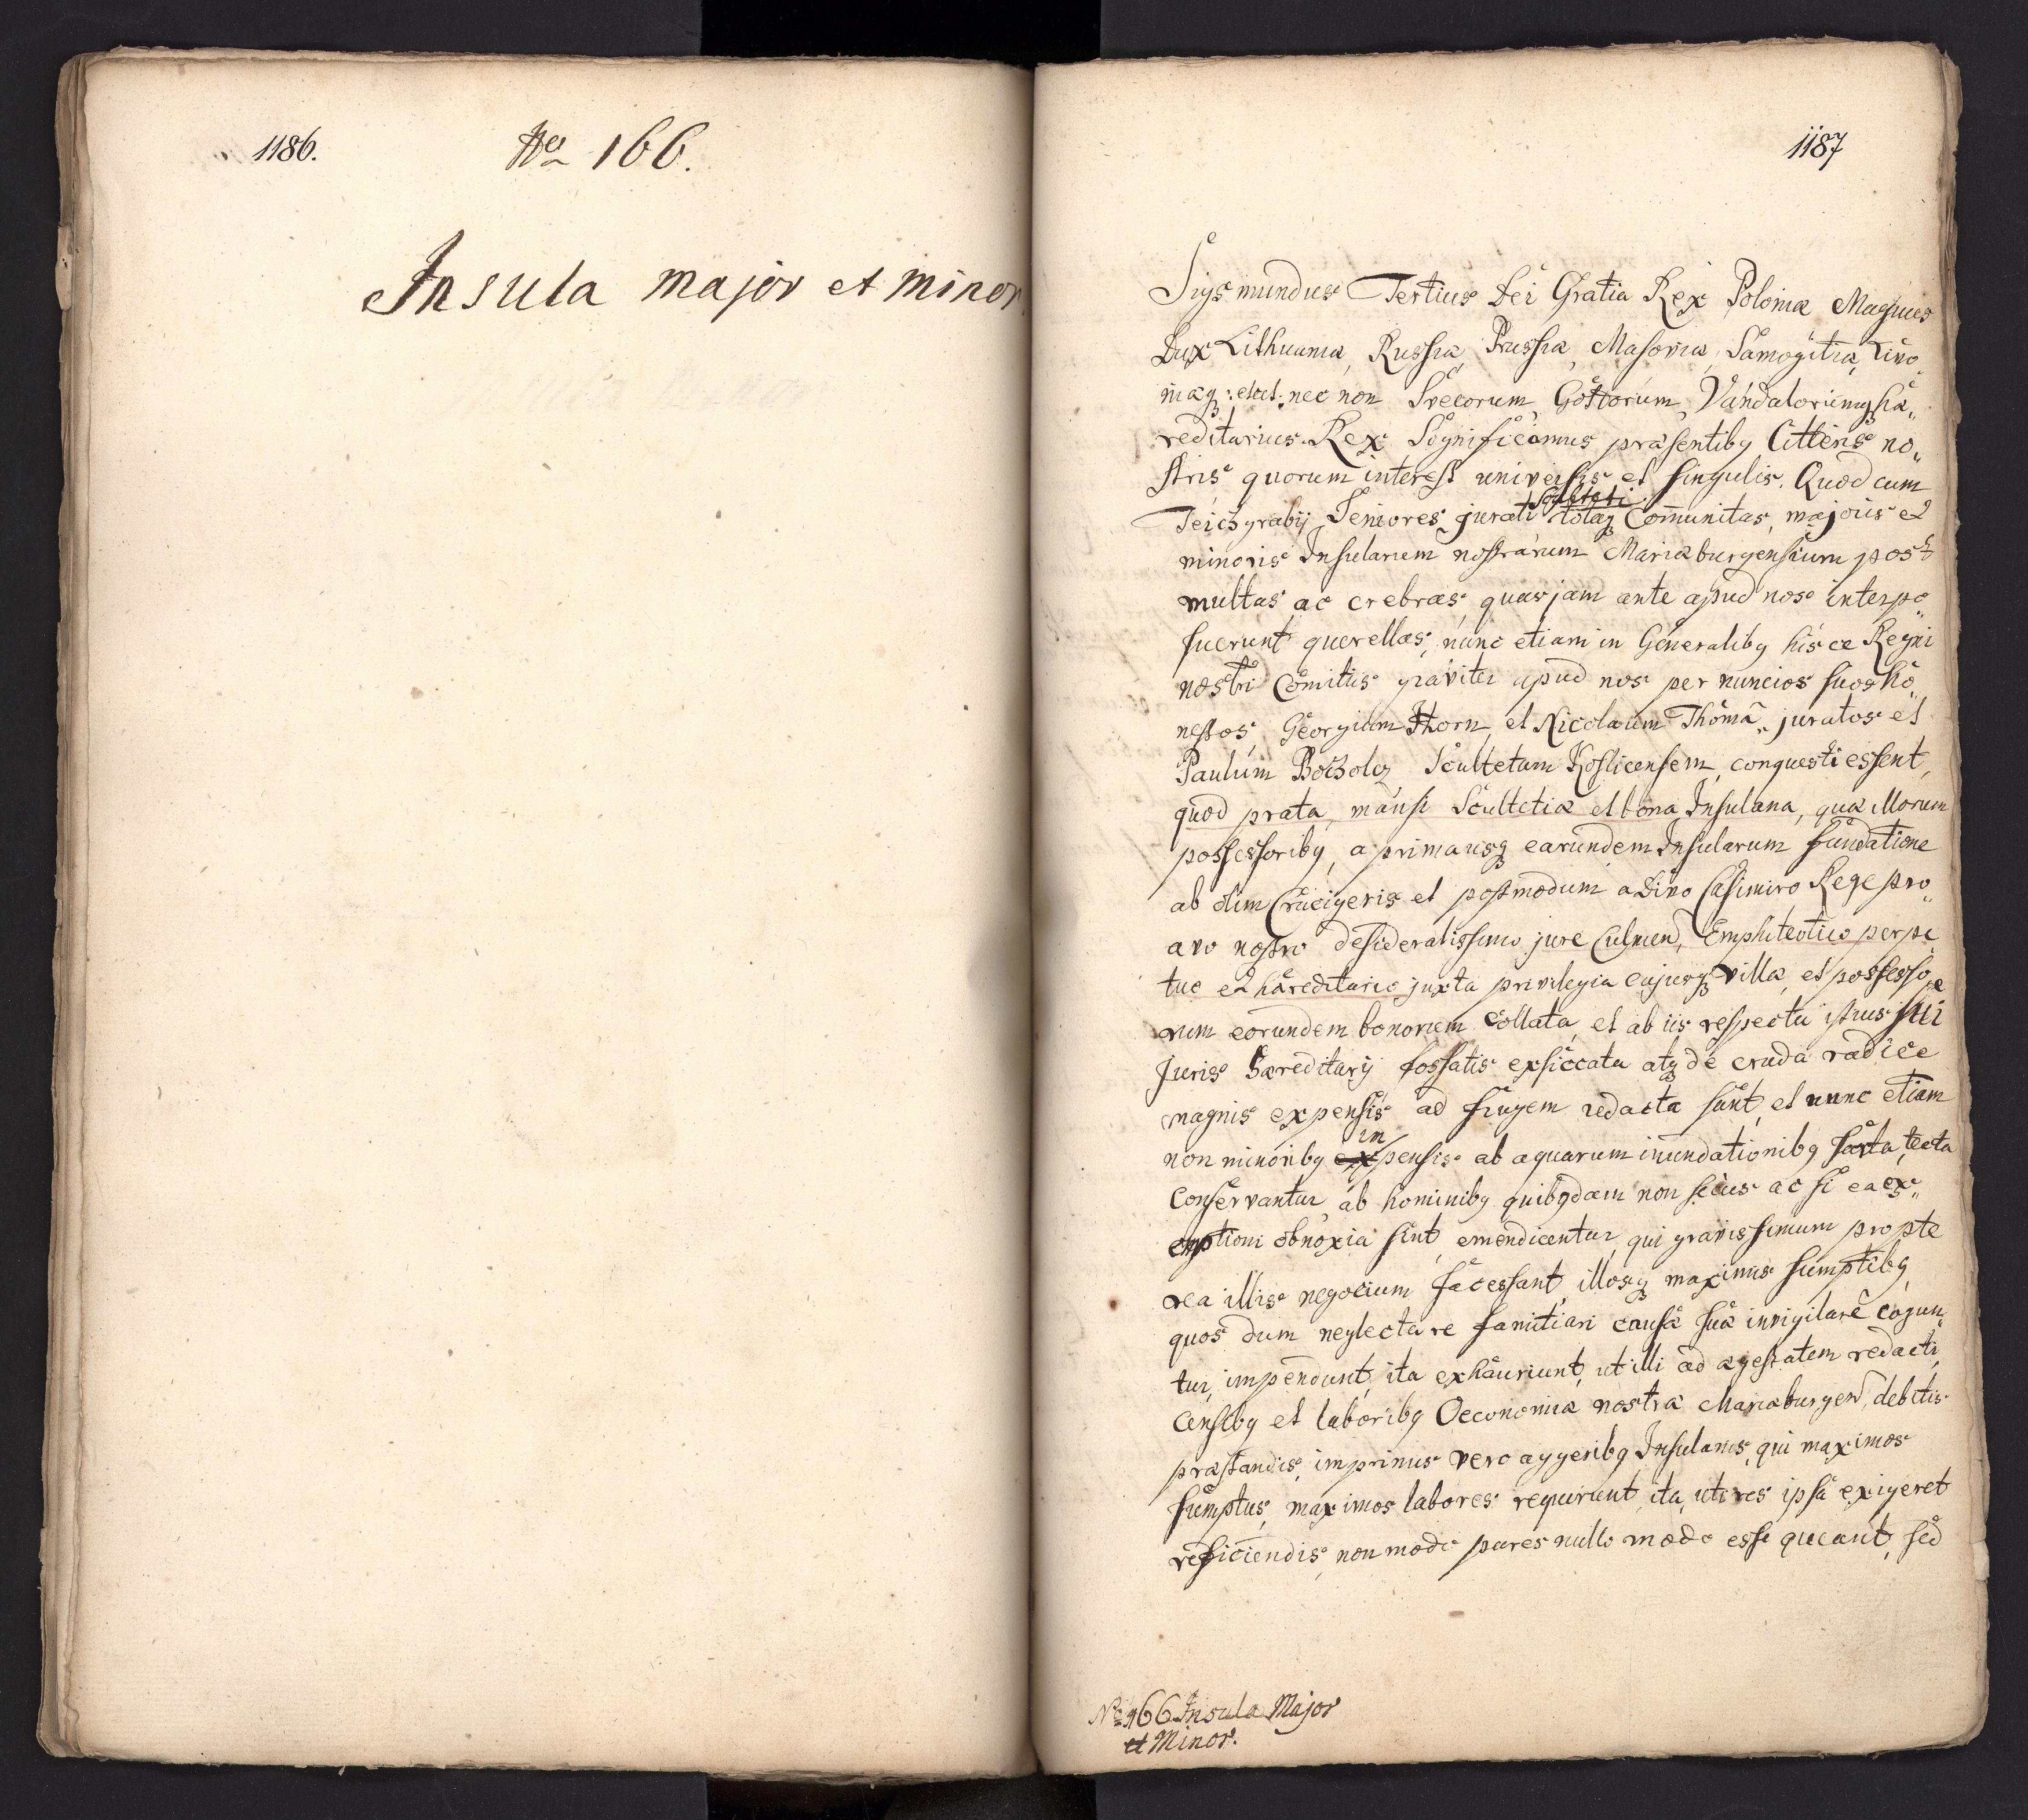 1186.
No 166.
Insula major et minor
1187
Sigsmundus Tertius Dei Gratia Rex Poloniæ Magnus
Dux Lithuaniæ, Russiæ, Prussiæ, Masoviæ, Samogitiæ, Livo„
niæq; etct. nec non Svecorum, Gottorum, Vandalorumq; hæ„
reditarius Rex Significamus præsentibq Litteris no„
stris quorum interest universis et singulis. Quod cum
Teichgrabij Seniores, jurati Sculteti totaq Com̄unitas, majoris et
minoris Insularum nostrarum Mariæburgensium post
multas ac crebras quas jam ante apud nos interpo„
suerunt querellas, nunc etiam in Generalibq hisce Regni
nostri Comitiis graviter apud nos per nuncios suos ho„
nestos, Georgium Horn, et Nicolaum Thomā„ juratos et
Paulum Bocholcz Scultetum Koslicensem, conquesti essent,
quod prata, mansi Scultetiæ et bona Insulana, quæ illorum
possessoribq, a prima usq earundem Insularum fundatione
ab olim Crucigeris et postmodum a Divo Casimiro Rege pro„
avo nostro desideratissimo jure Culmen, Emphiteotico perpe„
tuo et hæreditario juxta privilegia cujusq villæ, et possesso„
rum eorundem bonorum collata, et ab iis respectu istius sui
Juris hæreditarij fossatis exsiccata atq de cruda radice
magnis expensis ad frugem redacta sunt, et nunc etiam
non minoribq expensis in ab aquarum inundationibq sarta tecta
conservantur, ab hominibq quibqdam non secus ac si ea ex„
emptioni obnoxia sint, emendicentur, qui gravissimum propte
rea illis negocium facessant, illosq maximis sumptibq,
quos dum neglecta re familiari causæ suæ invigilare cogun„
tur, impendunt, ita exhauriunt, ut illi ad ægestatem redacti,
censibq et laboribq Oeconomiæ nostræ Mariæburgen, debitis
præstandis, imprimis vero aggeribq Insulanis, qui maximos
sumptus, maximos labores requirunt, ita, uti res ipsa exigeret
reficiendis, non modo pares nullo modo esse queant, sed
No 166 Insula Major
et Minor.